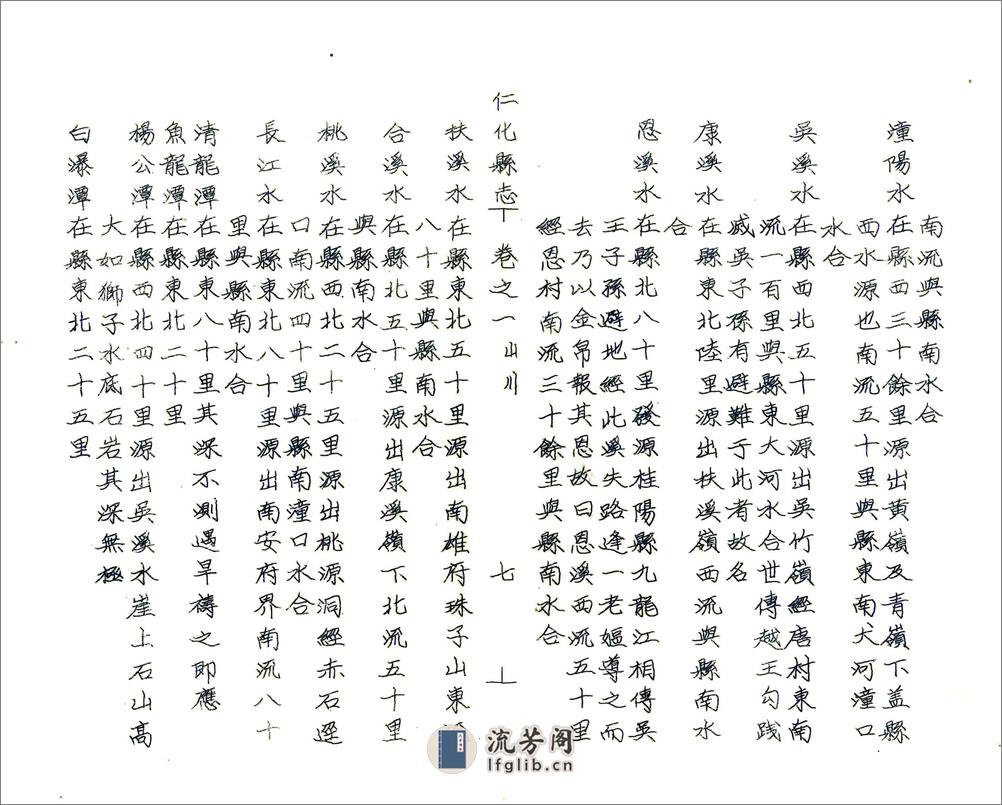 南流與縣南水合
潼陽水在縣西三十餘里源出黃嶺及青嶺下盖縣
西水源也南流五十里與縣東南大河潼口
水合
吳溪水在縣西北五十里源出吳竹嶺經唐村東南
流一百里與縣東大河水合世傳越王勾践
滅吳子孫有避難于此者故名
康溪水在縣東北陸里源出扶溪嶺西流與縣南水
合
恩溪水在縣北八十里發源桂陽縣九龍江相傳吳
王子孫避地經此溪失路逢一老嫗導之而
去乃以金帛報其恩故曰恩溪西流五十里
經恩村南流三十餘里與縣南水合
仁化縣志 卷之一 山川 七
扶溪水在縣東北五十里源出南雄府珠子山東
八十里與縣南水合
合溪水在縣北五十里源出康溪嶺下北流五十里
與縣南水合
桃溪水在縣西北二十五里源出桃源洞經赤石逕
口南流四十里與縣南潼口水合
長江水在縣東北八十里源出南安府界南流八十
里與縣南水合
清龍潭在縣東八十里其深不測遇旱禱之即應
魚龍潭在縣東北二十里
楊公潭在縣西北四十里源出吳溪水崖上石山高
大如獅子水底石岩其深無極
白瀑潭在縣東北二十五里
流芳阁
lfglib.cn